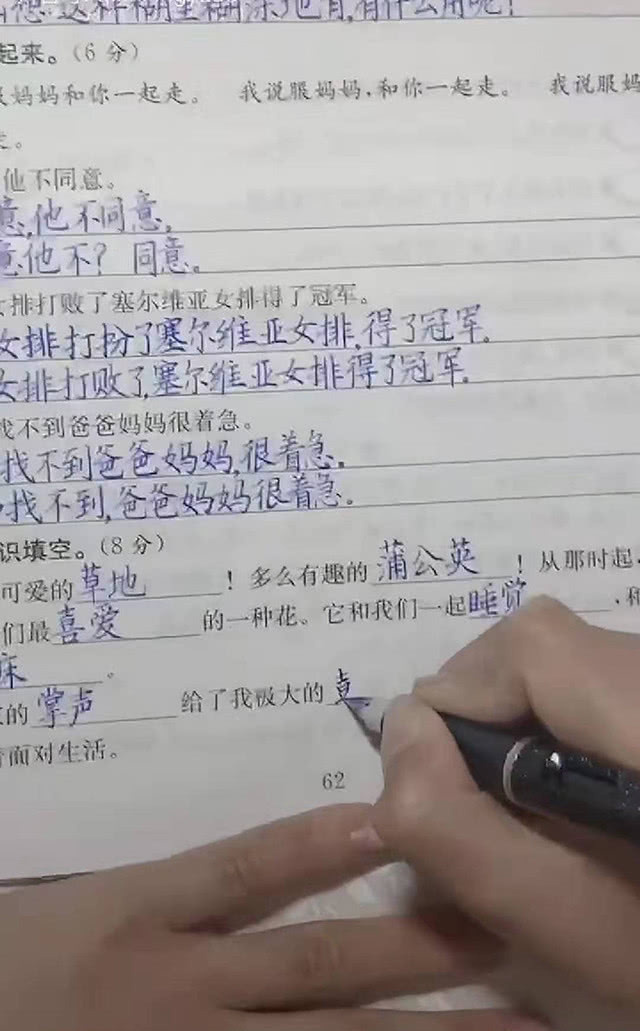 这样糊里糊涂地背,有什么用呢!
起来。(6分)
妈妈和你一起走。 我说服妈妈,和你一起走。 我说服妈
走。
他不同意。
意,他不同意。
意他不? 同意。
女排打败了塞尔维亚女排得了冠军。
女排打扮了塞尔维亚女排,得了冠军。
女排打败了,塞尔维亚女排得了冠军。
找不到爸爸妈妈很着急。
找不到爸爸妈妈,很着急。
找不到,爸爸妈妈很着急。
识填空。(8分)
可爱的草地！多么有趣的蒲公英！从那时起,
们最喜爱的一种花。它和我们一起睡觉,和
床。
的掌声给了我极大的
面对生活。
62